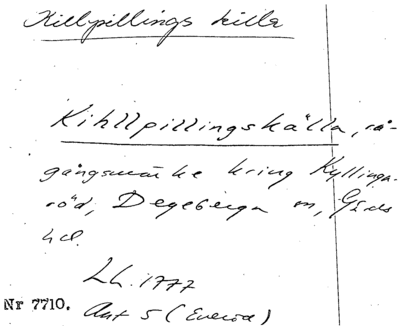 Killpillings killa
Kihllpillingskälla, rå-
gångsmärke kring Kyllinga-
röd, Degeberga sn, Gärds
hd.
Lh. 1777
Nr 7710.
Akt 5 (Everöd)